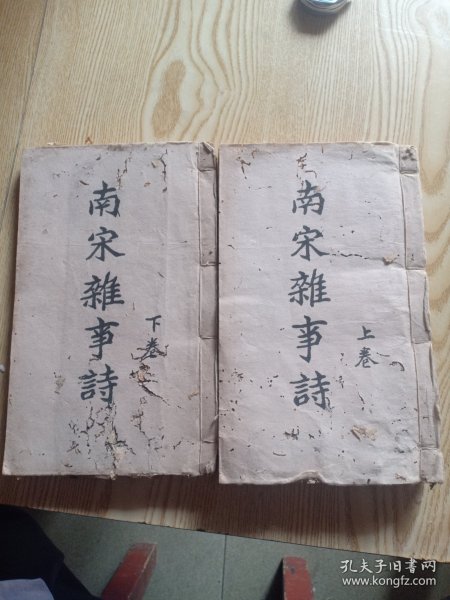 南宋雜事詩
上卷
南宋雜事詩
下卷
孔夫子旧书网
www.kongfz.com